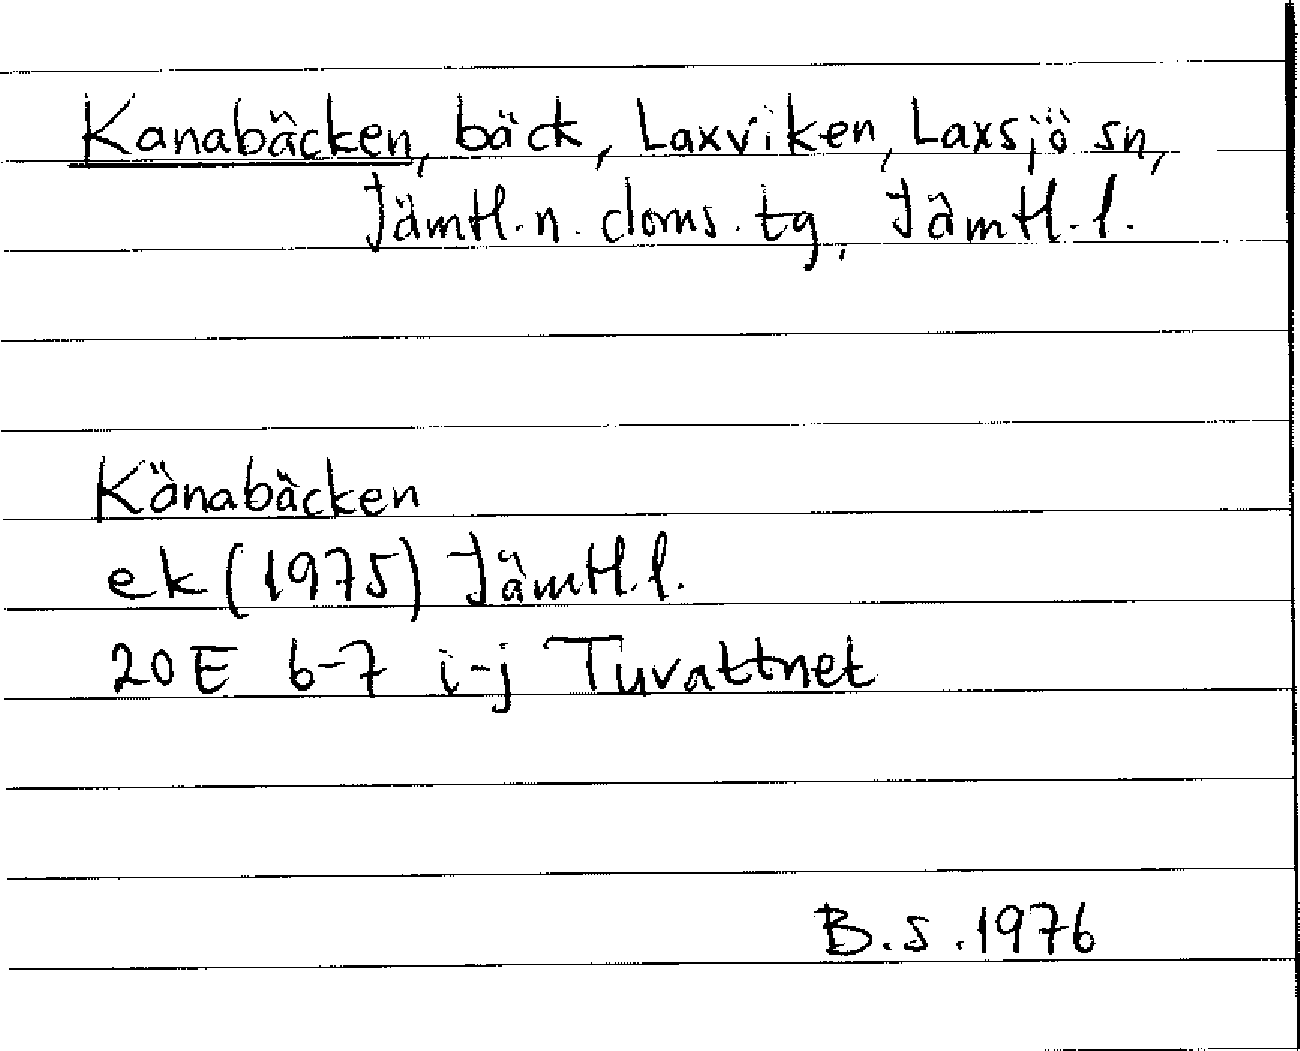 Kanabäcken, bäck, Laxviken, Laxsjö sn,
Jämtl. n. doms. tg, Jämtl. l.
Könabäcken
ek (1975) Jämtl. l.
20E 6-7 i-j Tuvattnet
B.S. 1976